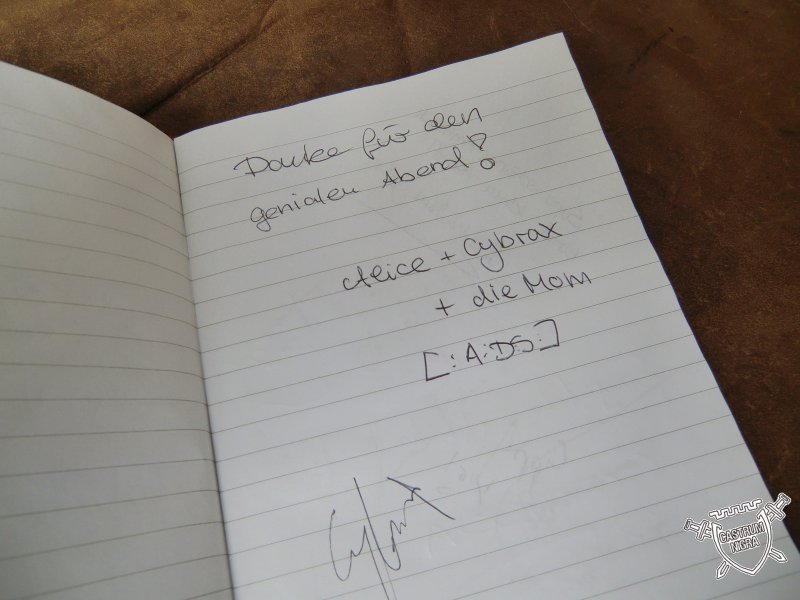 Danke für den
genialen Abend!
Alice + Cybrax
+ die Mom
[:A:DS:]
CASTRUM
NIGRA